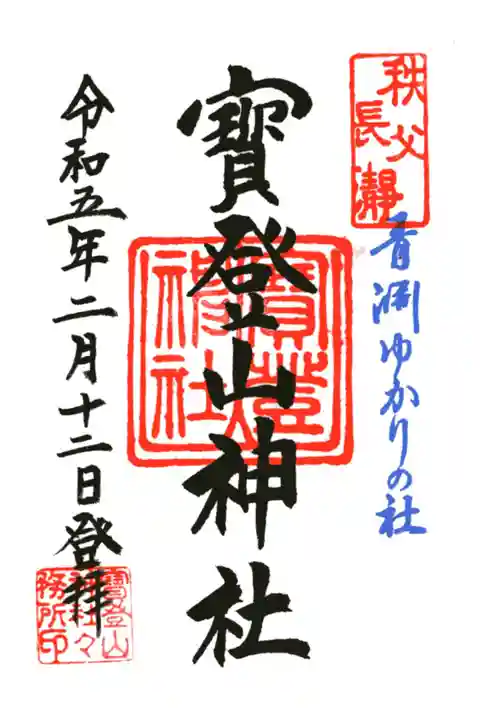 秩父
長瀞
青淵ゆかりの社
寳登山神社
寳登山
神社
令和五年二月十二日登拝
寳登山
神社々
務所印